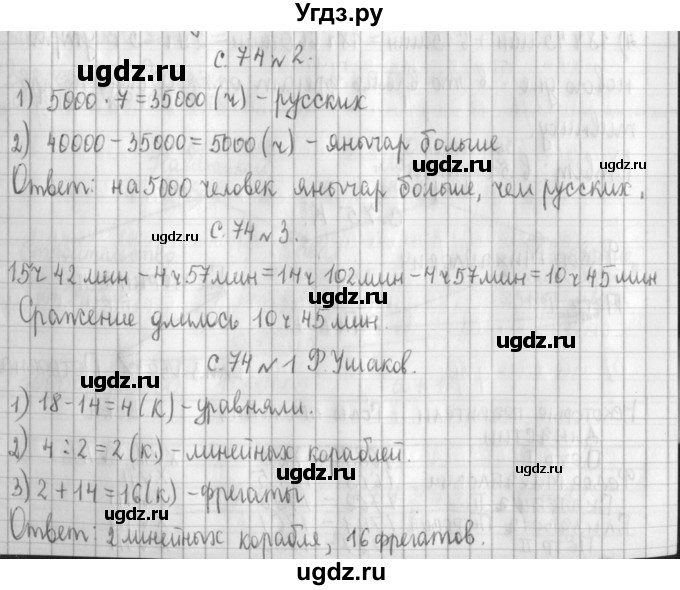 Угдз.ру
с. 74 № 2.
ugdz.ru
1) 5000 · 7 = 35000 (ч) - русских
ugdz.ru ugdz.ru
2) 40000 - 35000 = 5000 (ч) - янычар больше
ugdz.ru
Ответ: на 5000 человек янычар больше, чем русских.
ugdz.ru с. 74 № 3.
15ч 42 мин - 4ч 57мин = 14ч 102мин - 4ч 57мин = 10ч 45мин
ugdz.ru
Сражение длилось 10ч 45мин.
с. 74 № 1 Ф. Ушаков.
ugdz.ru
1) 18 - 14 = 4 (к) - уравняли.
2) 4 : 2 = 2 (к) - линейных кораблей.
ugdz.ru ugdz.ru
3) 2 + 14 = 16 (к) - фрегаты
ugdz.ru
Ответ: 2 линейных корабля, 16 фрегатов.
ugdz.ru